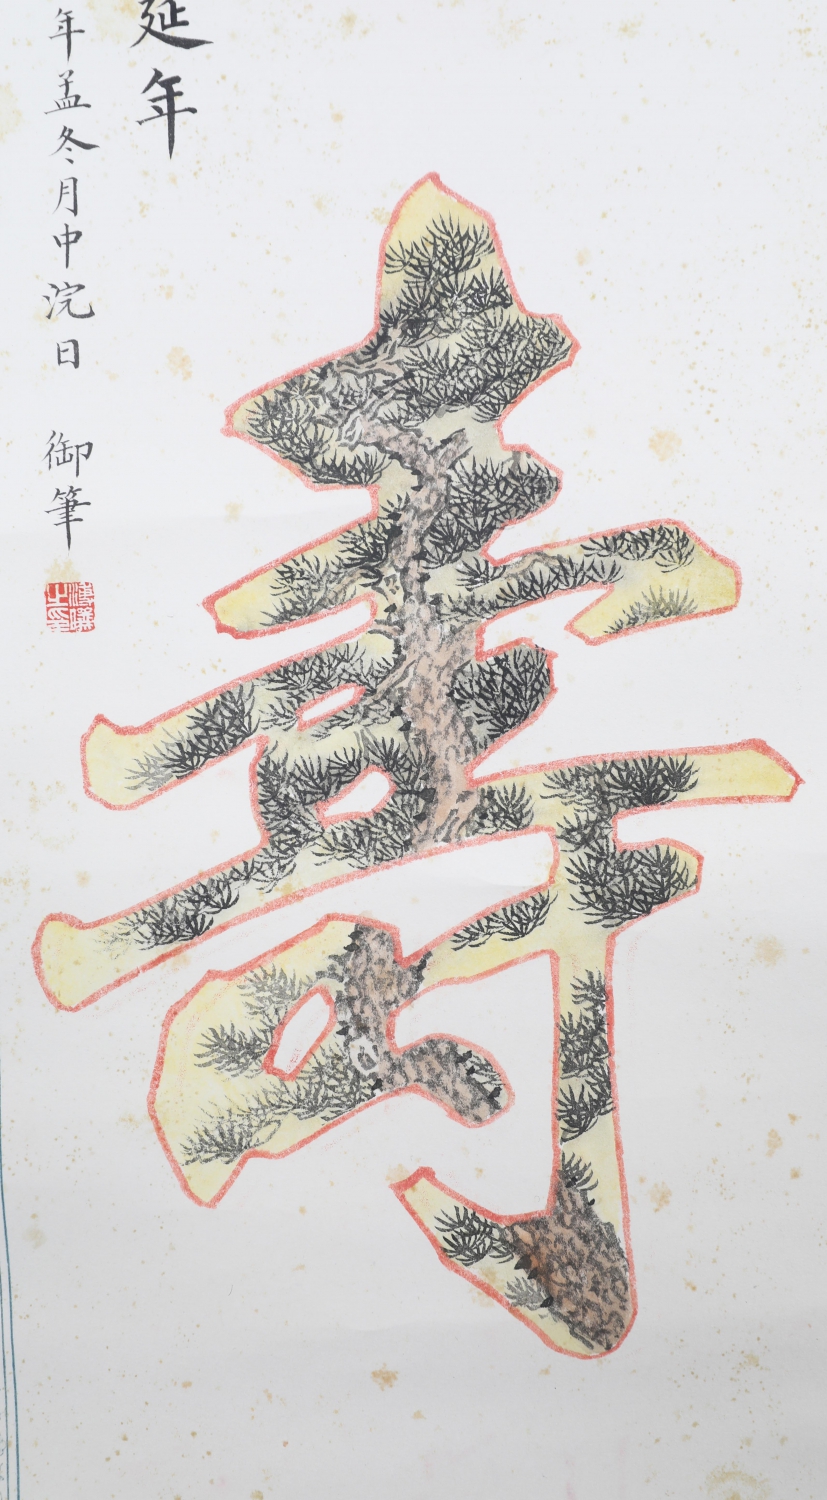 延年
年孟冬月中浣日 御筆
壽